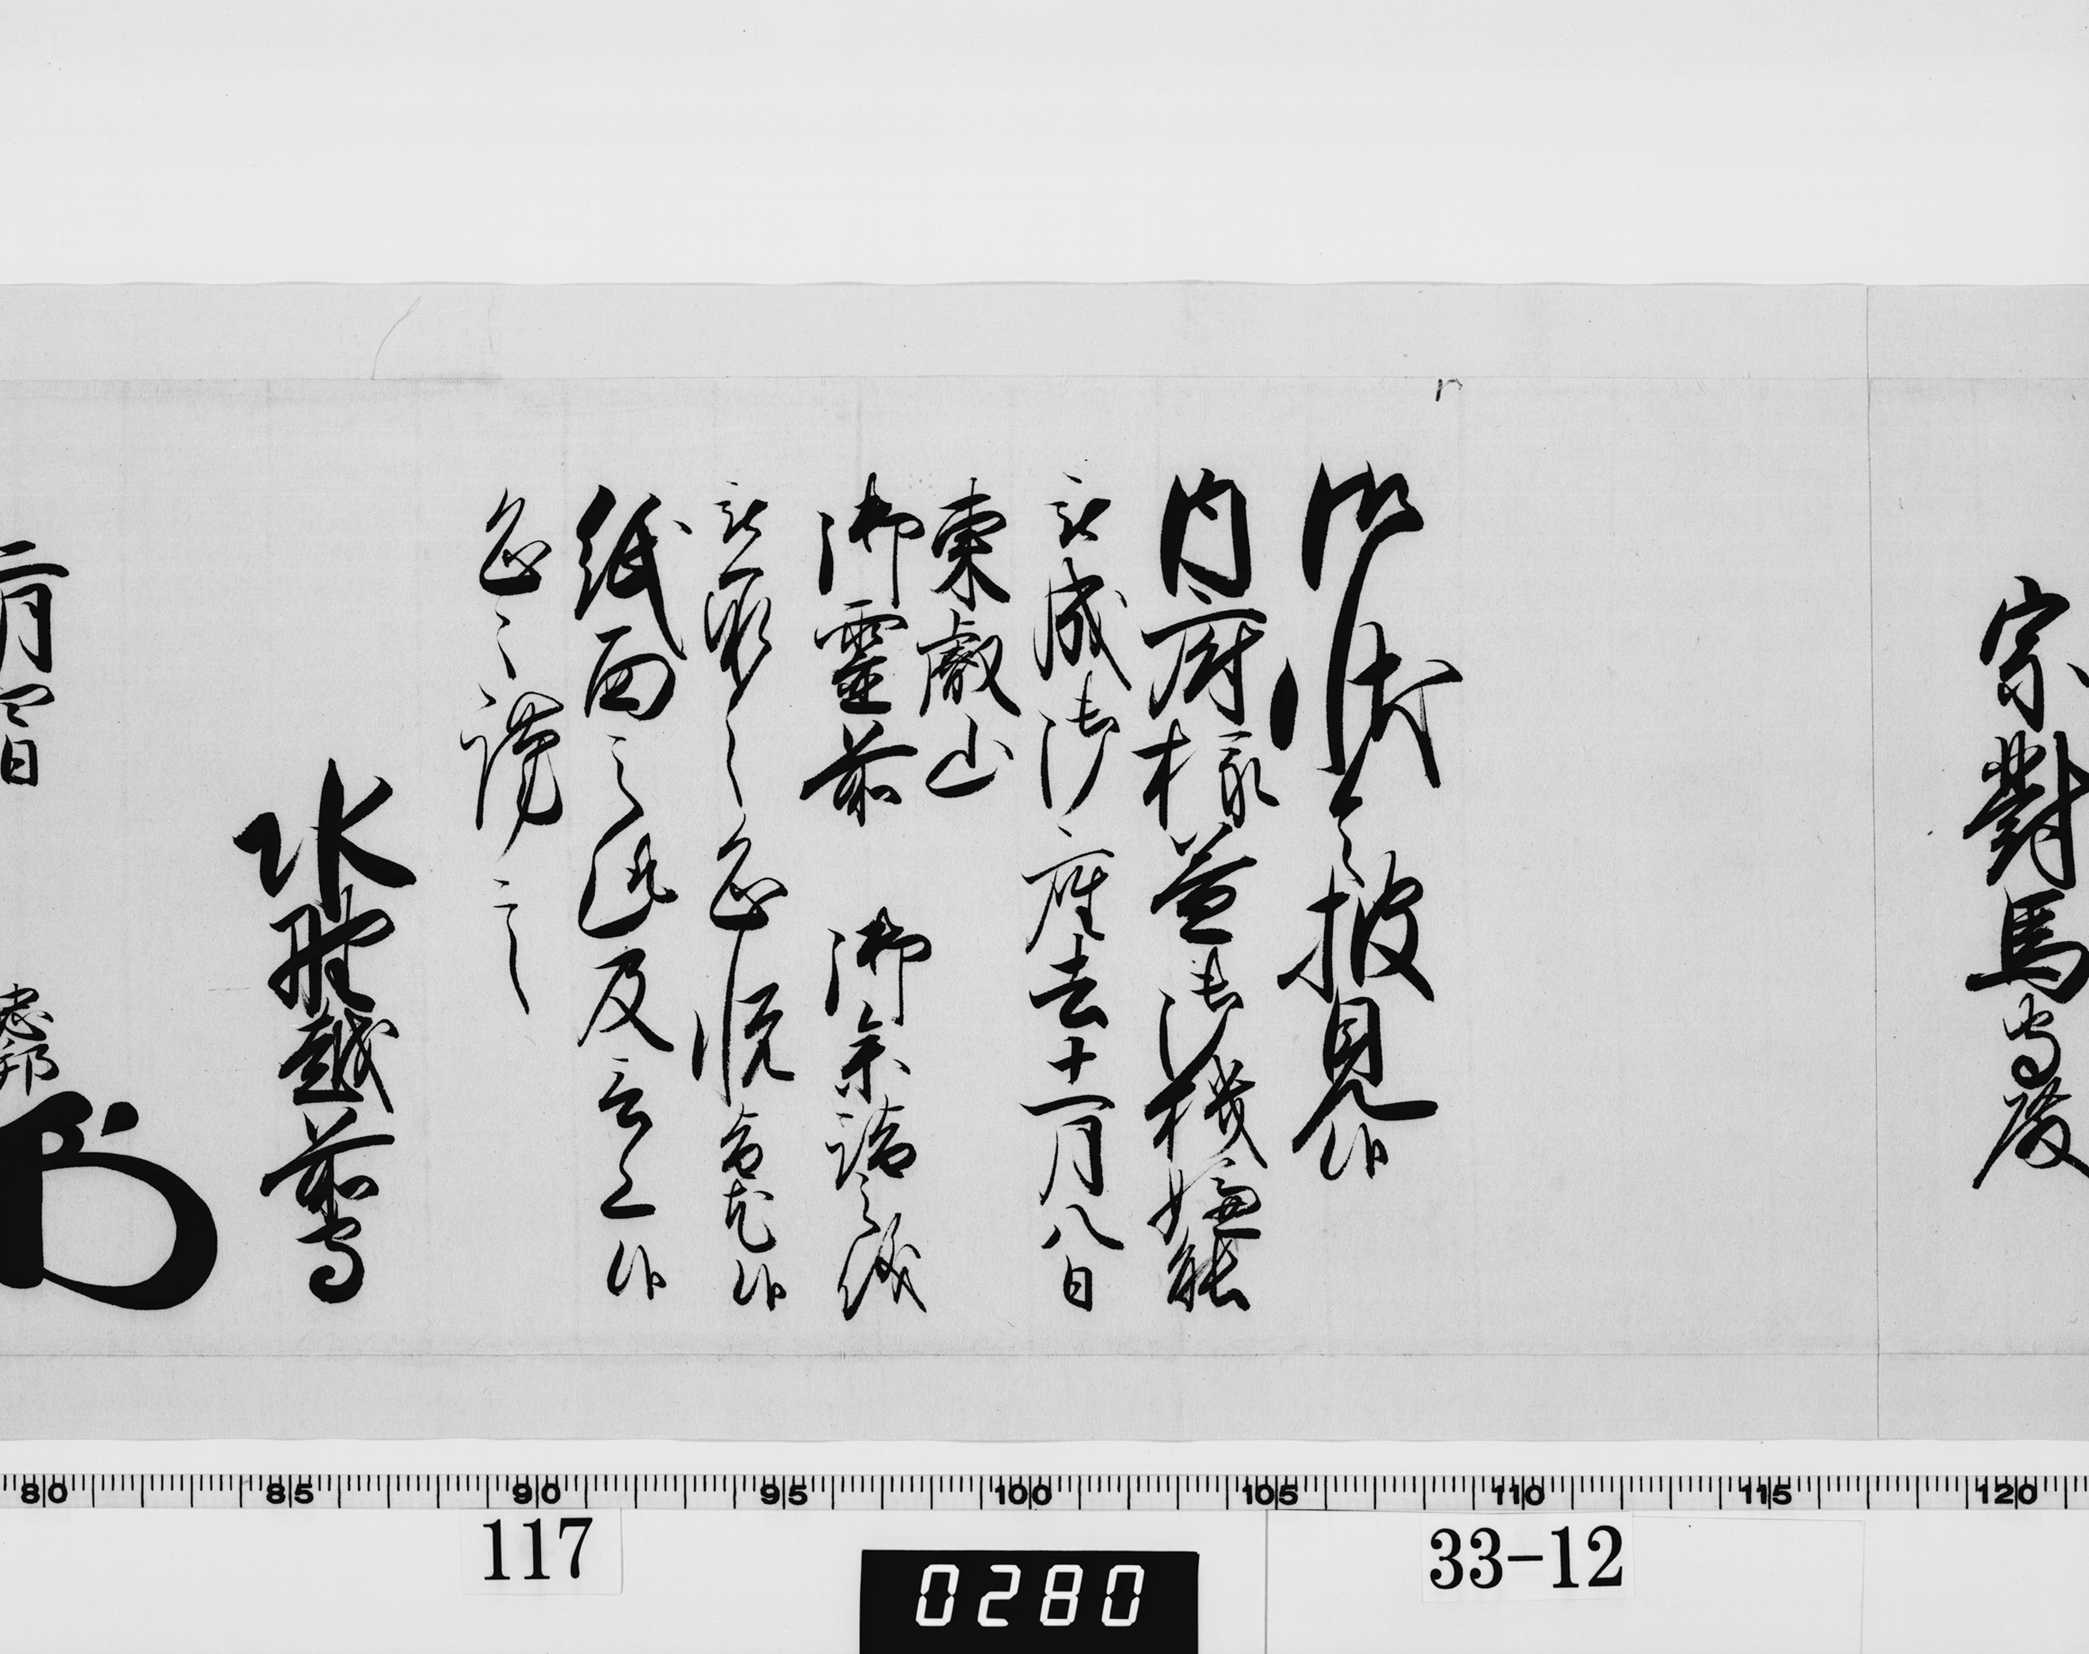 宗對馬守殿
御状令披見候
内府様益御機嫌能
被成御座去十一月八日
東叡山
御靈前 御参詣之儀
被承之恐悦旨尤候
紙面之趣及言上候
恐々謹言
水野越前守
二月四日 忠邦
80 85 90 95 100 105 110 115 120
117 0280 33-12